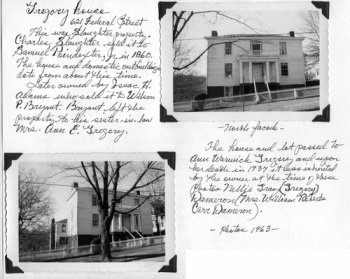 Gregory House
621 Federal Street
This was Slaughter property.
Charles Slaughter sold it to
Samuel Poindexter, Jr in 1860.
The house and domestic outbuildings
date from about this time.
Later owned by Isaac H.
Adams who sold it to Wilson
P. Bryant. Bryant left the
property to his sister-in-law
Mrs. Ann E. Gregory.
- North facade -
The house and lot passed to
Ann Warwick Gregory and upon
her death in 1937 it was inherited
by the owner at the time of these
photos Nellie Gray (Gregory)
Dameron (Mrs. William
Carr Dameron).
- Photos 1963 -